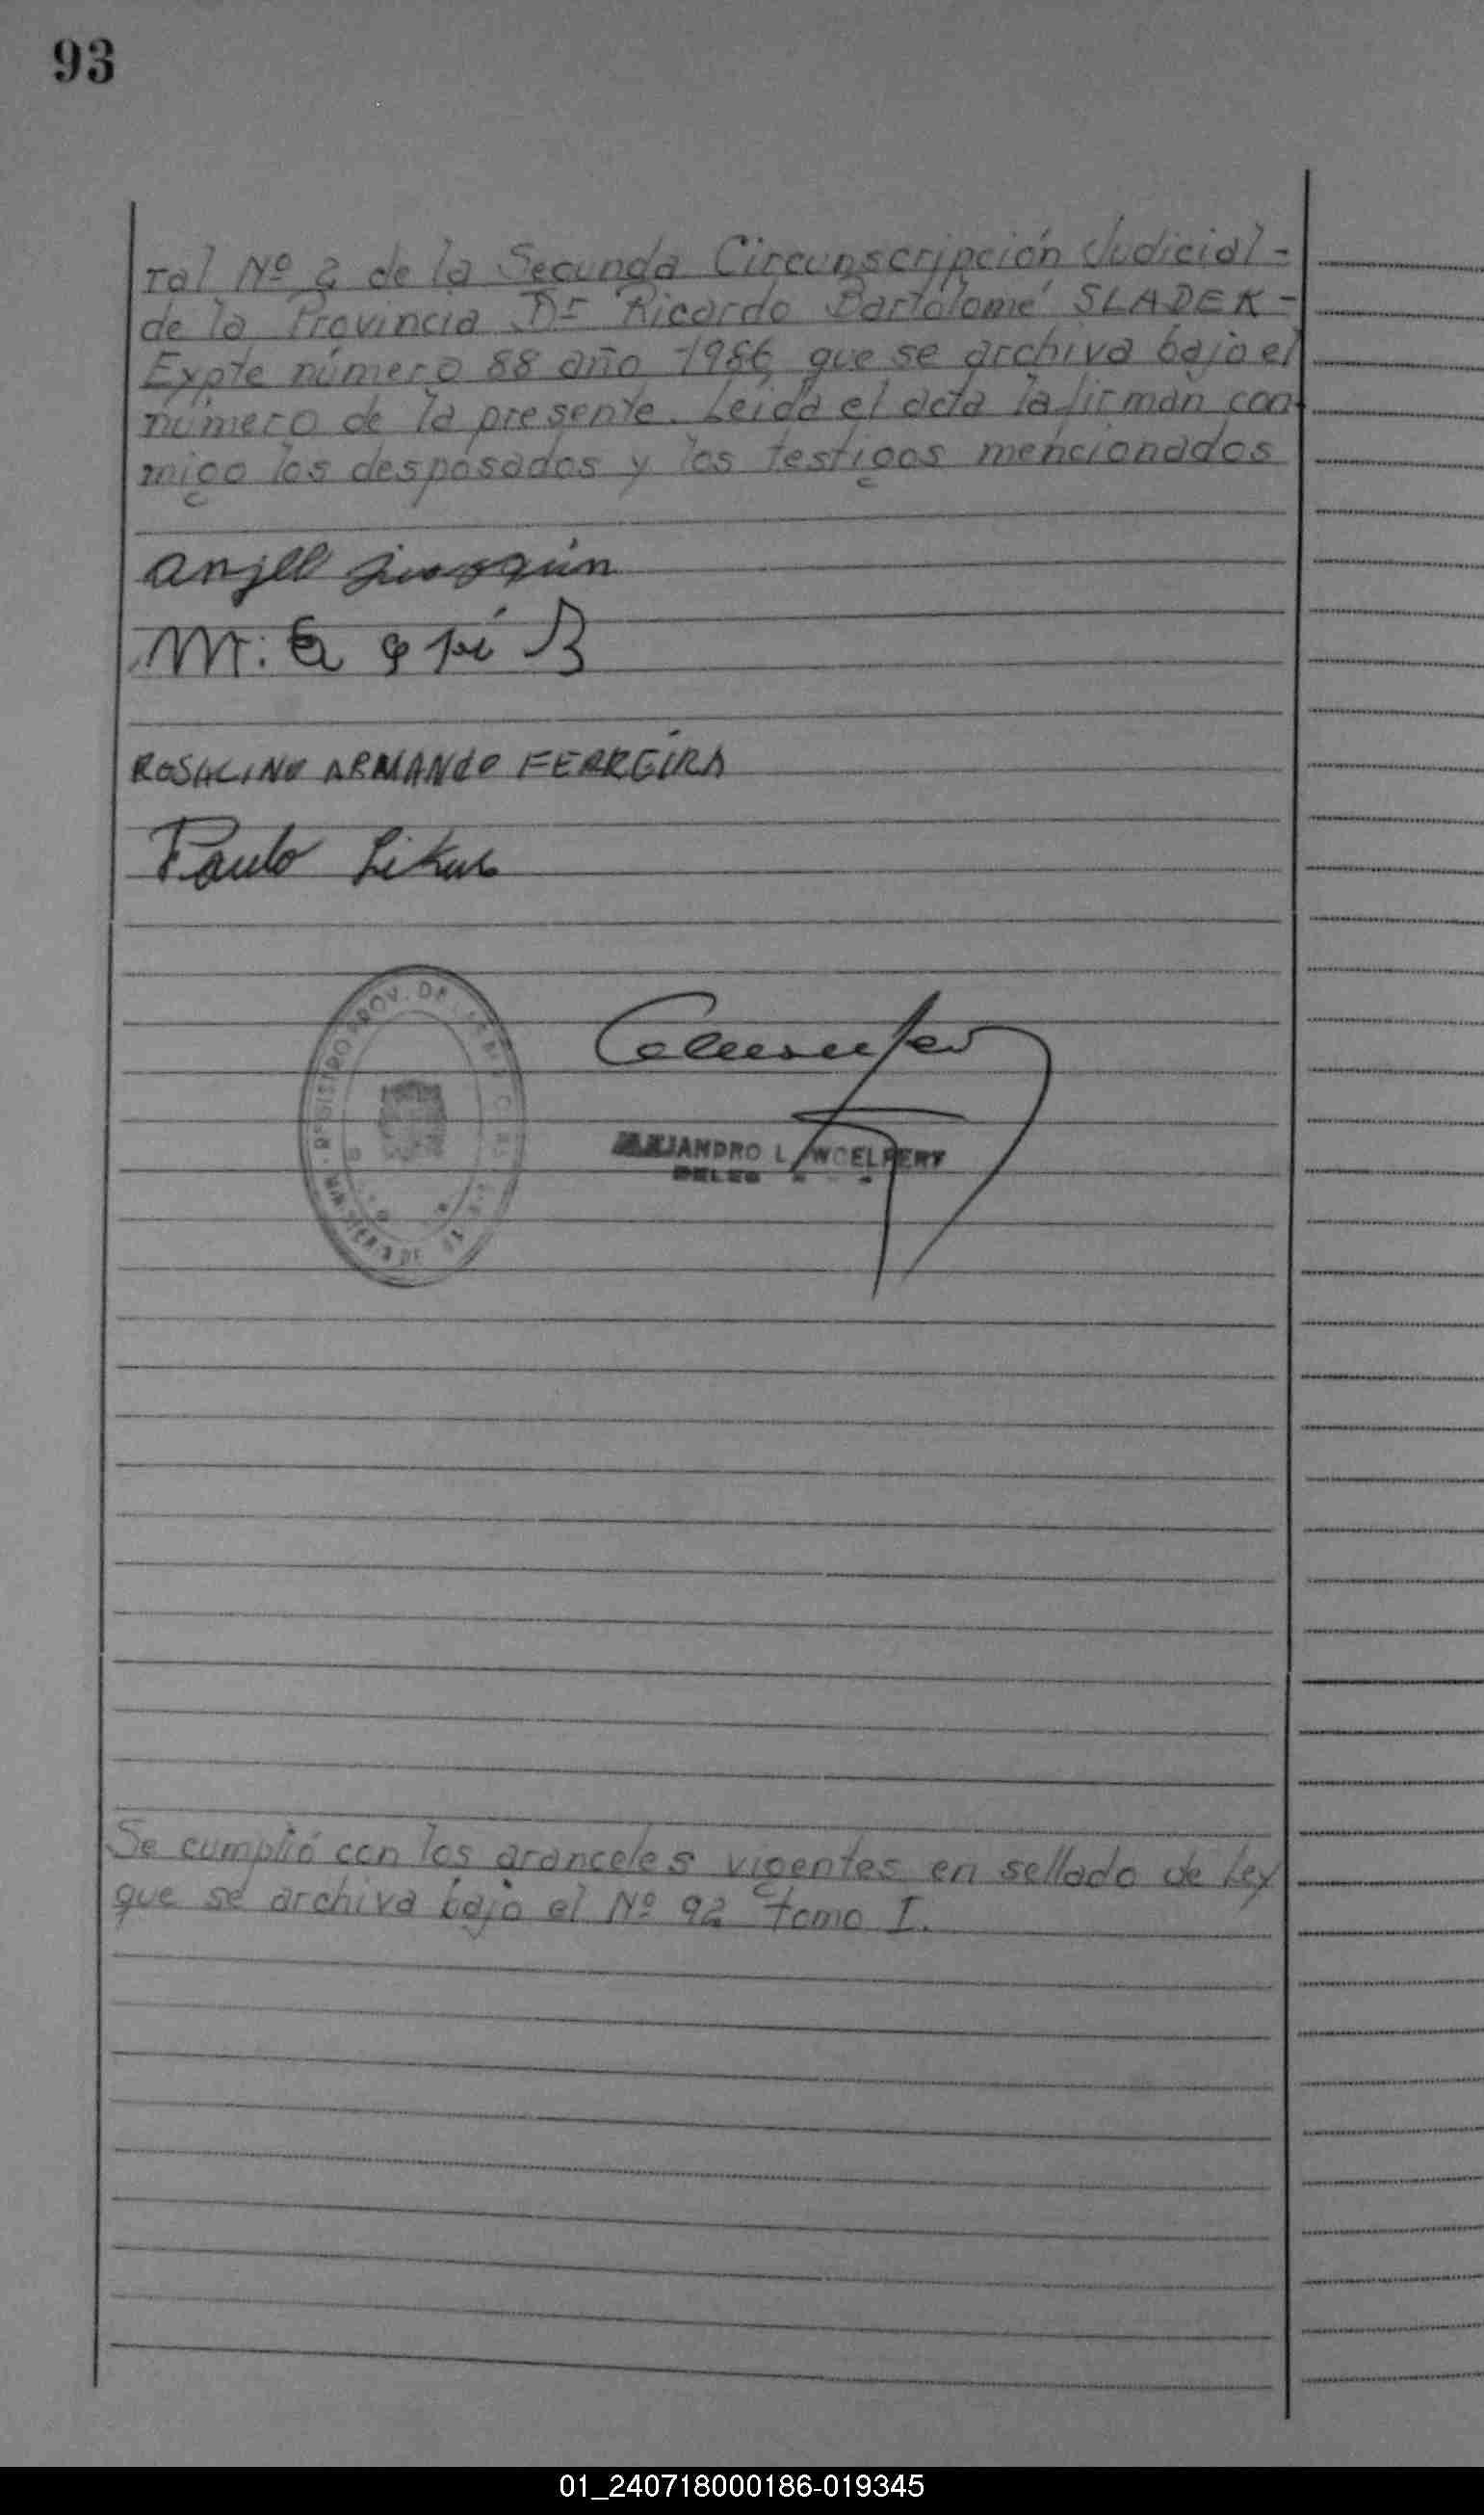 93
ral Nº 2 de la Secunda Circunscripción Judicial -
de la Provincia Dr Ricardo Bartolomé SLADEK -
Expte número 88 año 1986 que se archiva bajo el
número de la presente. Leida el acta la firman con-
migo los desposados y los testigos mencionados
anjel juoaquin
ROSALINO ARMANDO FERREIRA
Paulo
REGISTRO PROV. DE
MINISTERIO DE
ALEJANDRO L. WOELFERT
DELEG
Se cumplió con los aranceles vigentes en sellado de Ley
que se archiva bajo el Nº 92 tomo I.
01_240718000186-019345